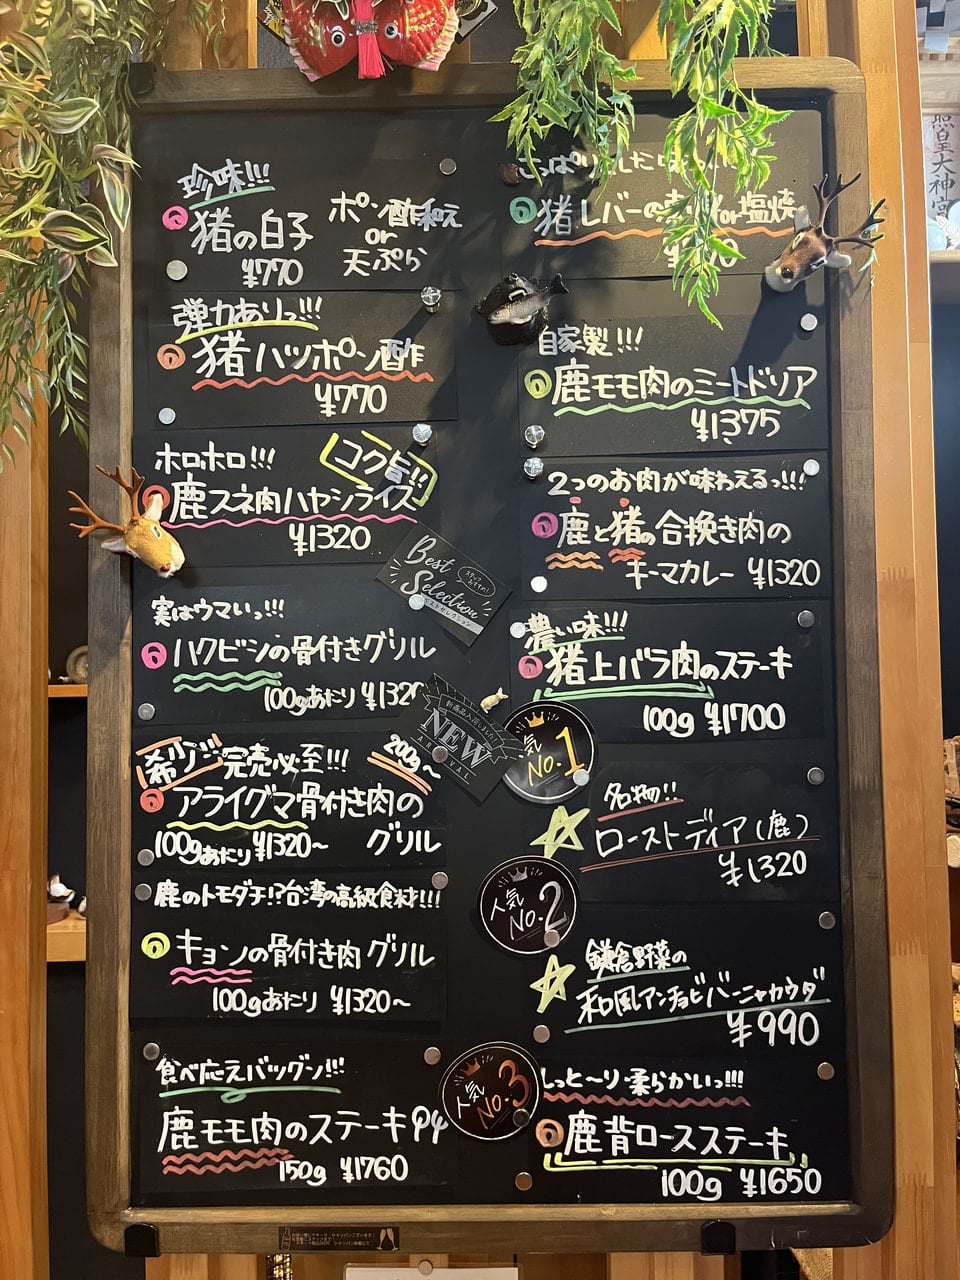 珍味!!!
猪の白子
ポン酢和え
or
天ぷら
¥770
弾力ありっ!!!
猪ハツポン酢
¥770
ホロホロ!!!
コク旨!!
鹿スネ肉ハヤシライス
¥1320
Best
Selection
ベストセレクション
実はウマいっ!!!
ハクビシンの骨付きグリル
100gあたり ¥1320
NEW
ARRIVAL
希少ジビ完売必至!!!
200g~
アライグマ骨付き肉の
グリル
100gあたり ¥1320~
鹿のトモダチ!?台湾の高級食材!!!
キョンの骨付き肉 グリル
100gあたり ¥1320~
食べ応えバツグン!!!
鹿モモ肉のステーキ
150g ¥1760
猪レバーの
or塩焼
自家製!!!
鹿モモ肉のミートドリア
¥1375
2つのお肉が味わえるっ!!!
鹿と猪の合挽き肉の
キーマカレー ¥1320
濃い味!!!
猪上バラ肉のステーキ
100g ¥1700
気
No.1
名物!!
ローストディア(鹿)
¥1320
人気
No.2
鎌倉野菜の
和風アンチョビバーニャカウダ
¥990
人気
No.3
しっと~り柔らかいっ!!!
鹿背ロースステーキ
100g ¥1650
皇大神宮